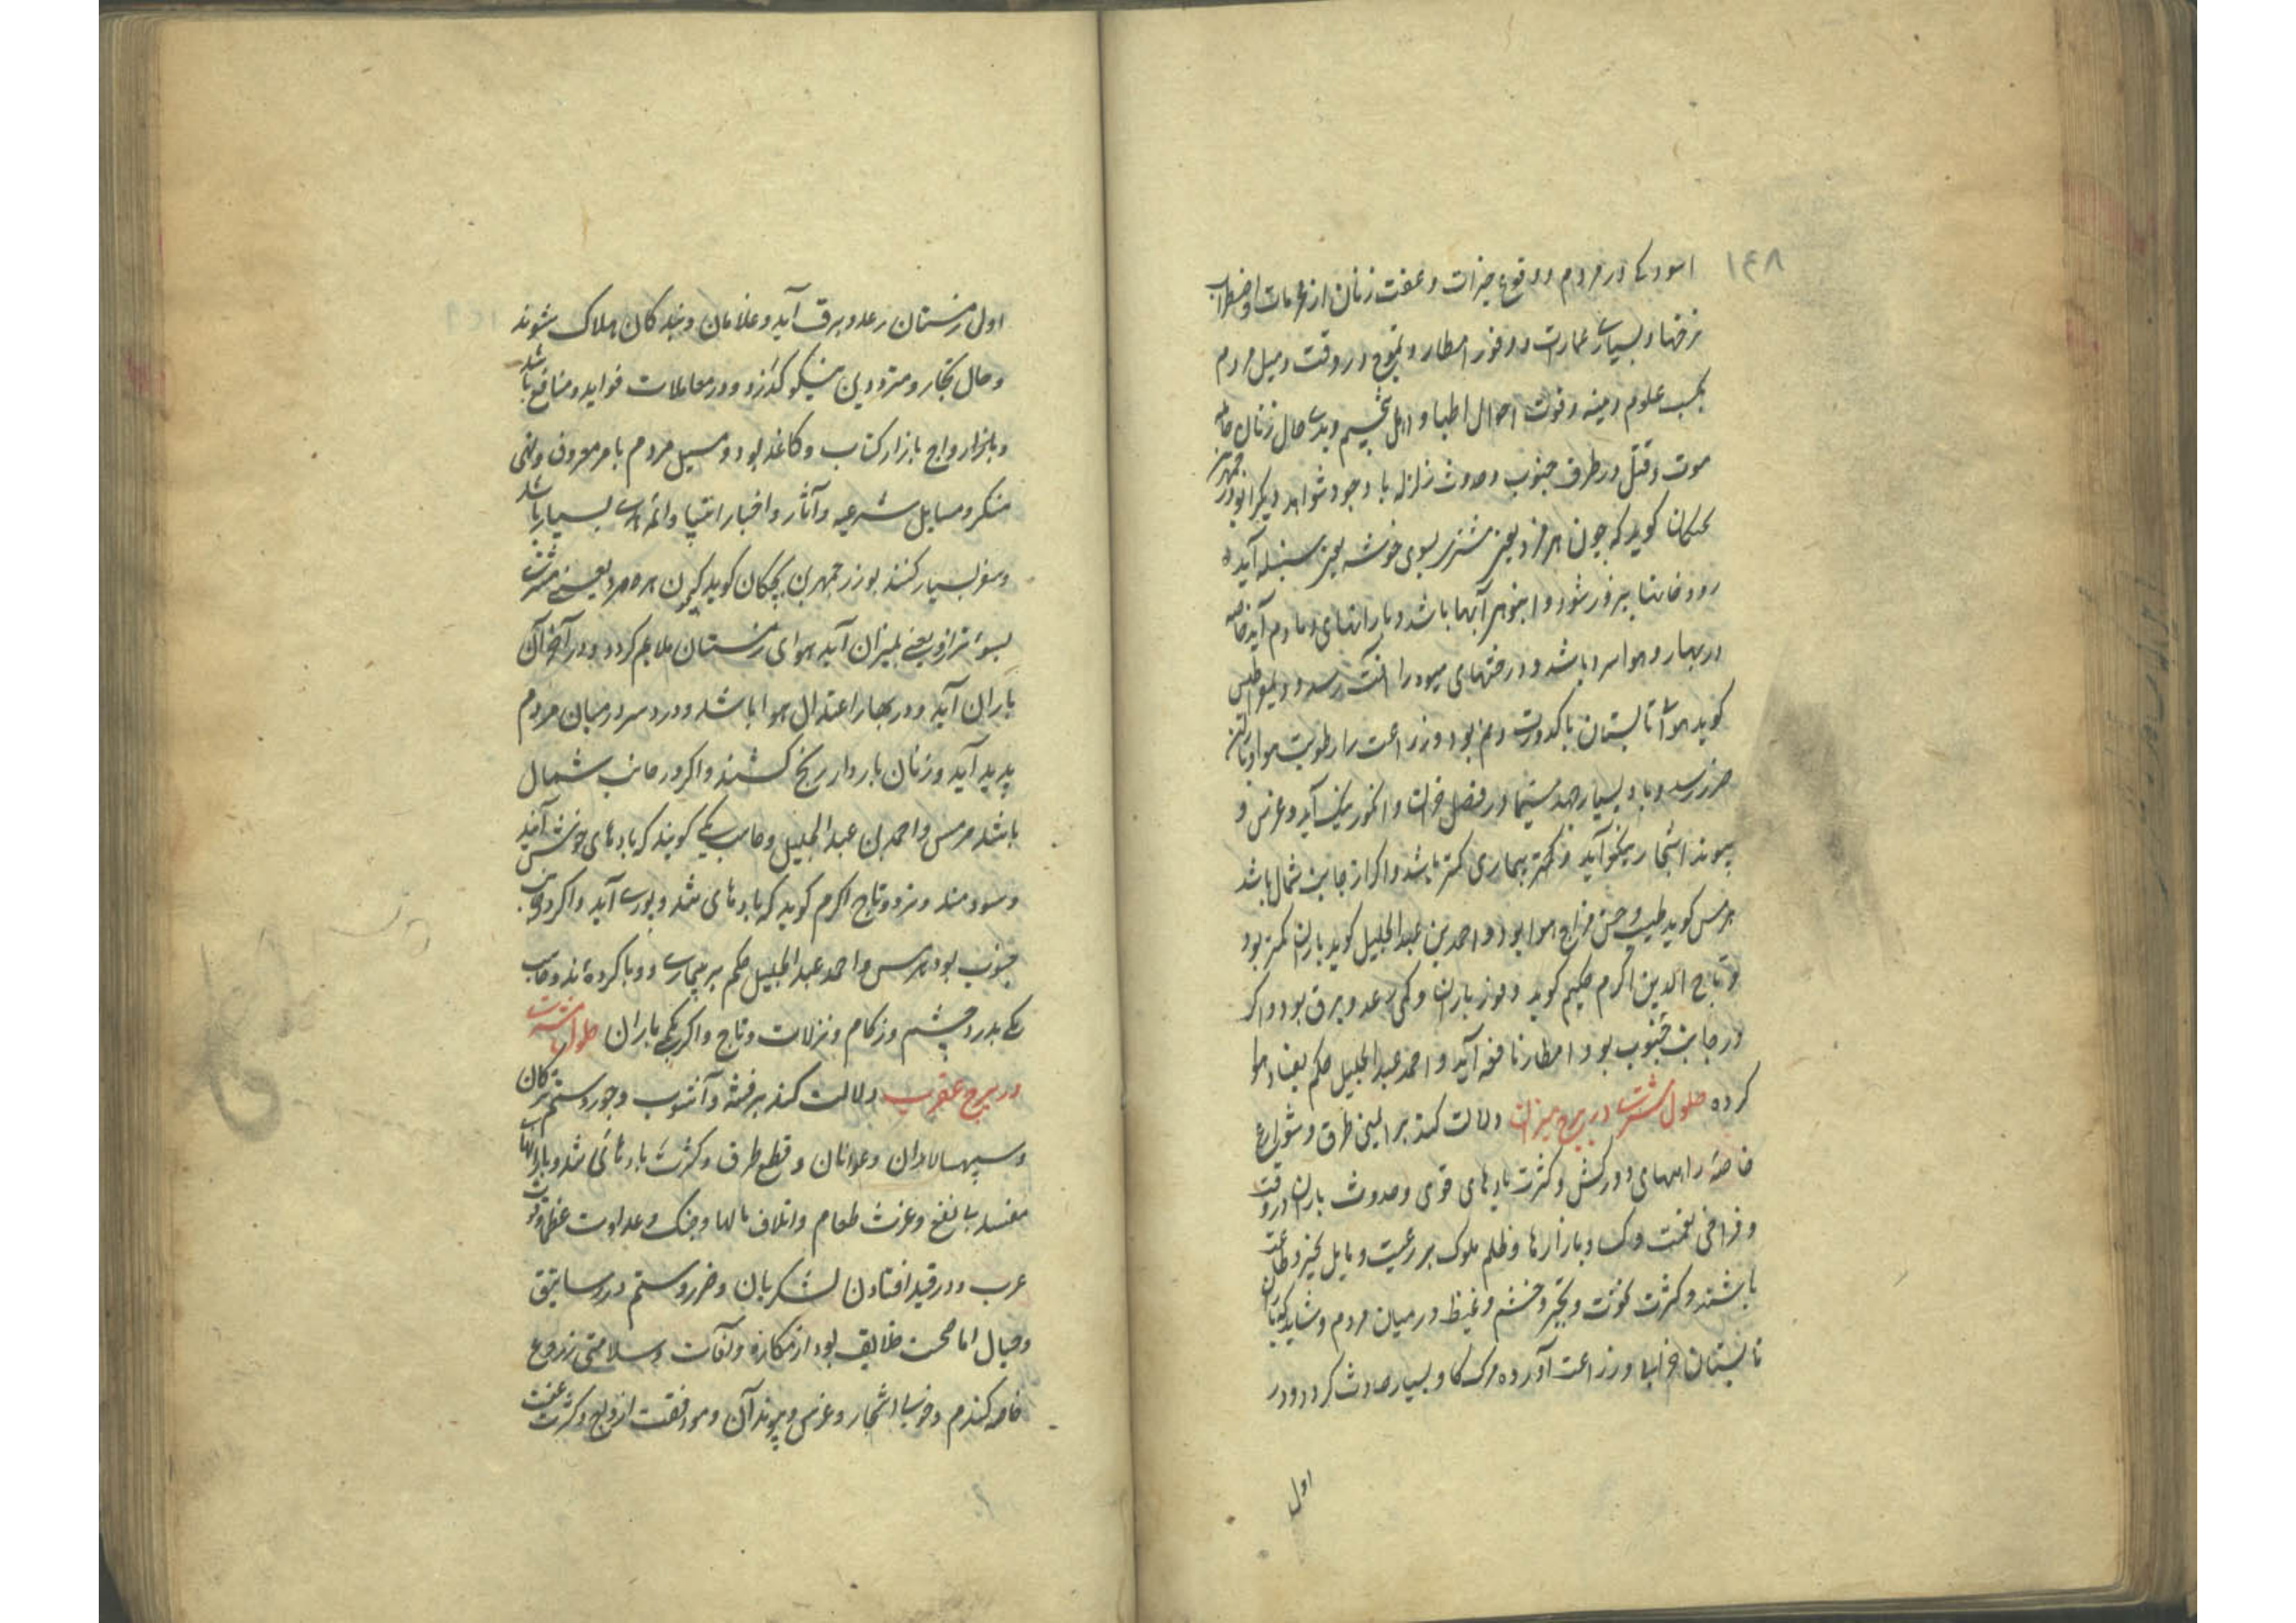 ۱۴۸
اسودکی در مردم و وقوع خیرات و عفت زنان از محرمات و اضطراب
نرخها و بسیاری عمارت و وفور امطار و تموج در وقت و میل مردم
بکسب علوم دینیه و قوت احوال اطبا و اهل تنجیم و بدی حال زنان حامله
موت و قتل در طرف جنوب و حدوث زلزله با وجود شواهد دیگر ابوذرجمهر
کوید که چون هرمزد یعنی مشتری بسوی خوشه یعنی سنبله آید
رودخانها پرزور شود و انبوهی آبها باشد و بارانهای دمادم آید خاصه
در بهار و هوا سرد باشد و درختهای میوه را آفت رسد و دیمقراطیس
کوید هوای تابستان با کدورت و نم بود و زراعت را رطوبت هوا و
ضرر رسد و باد بسیار جهد سیما در فصل خزان و انکور نیک آید و غرس و
پیوند اشجار نیکو آید و کمتر بیماری کمتر باشد و اکر از جانب شمال باشد
هرمس کوید طیب و حسن مزاج هوا بود و احمد بن عبد الجلیل کوید باران کمتر بود
و تاج الدین اکرم حکیم کوید وفور باران و کمی رعد و برق بود و اکر
در جانب جنوب بود امطار نافعه آید و احمد عبد الجلیل حکم بفساد هوا
کرده حلول مشتری در برج میزان دلالت کند بر ایمنی طرق و شوارع
خاصه راههای دورکش و کثرت بادهای قوی و حدوث باران در وقت
و فراخی نعمت و کساد بازارها و ظلم ملوک بر رعیت و مایل بخیر و طاعت
باشند و کثرت نخوت و تکبر و خشم و غیظ در میان مردم و شاید که باران
تابستان خرابی در زراعت آورد و مرک کاو بسیار حادث کردد و در
اول
اول زمستان رعد و برق آید و غلامان و بندکان هلاک شوند
و حال تجار و مترددین نیکو کذرد و در معاملات فواید و منافع باشد
و بازار رواج بازار کتاب و کاغذ بود و میل مردم بامر معروف و نهی
منکر و مسایل شرعیه و آثار و اخبار انبیا و ائمه هدی بسیار باشد
و سفر بسیار کنند بوزرجمهر بن بختکان کوید که چون هرمزد یعنی مشتری
بسوی ترازو یعنی بمیزان آید هوای زمستان ملایم کردد و در آخر آن
باران آید و در بهار اعتدال هوا باشد و درد سر در میان مردم
پدید آید و زنان باردار رنج کشند و اکر در جانب شمال
باشد هرمس و احمد بن عبد الجلیل و صاحب یکی کویند که بادهای خوش آید
و سودمند و نزد تاج اکرم کوید که بادهای تند و بوری آید و اکر در جانب
جنوب بود هرمس و احمد عبد الجلیل حکم بر بیماری و وبا کرده‌اند و صاحب
یکی بدرد چشم و زکام و نزلات و تاج و اکر یکی باران حلول مشتری
در برج عقرب دلالت کند بر فتنه و آشوب و جور و ستم ترکان
و سپهسالاران و عوانان و قطع طرق و کثرت بادهای تند و بارانهای
مفسد بی نفع و عزت طعام و اتلاف مالها و جنک و عداوت عظما و قوت
عرب و در قید افتادن لشکریان و ضرر و ستم در رساتیق
و جبال اما صحت خلایق بود از مکاره و آفات و سلامتی زروع
خاصه کندم و خوبی اشجار و غرس و پیوند آن و موافقت ازواج و کثرت عفت